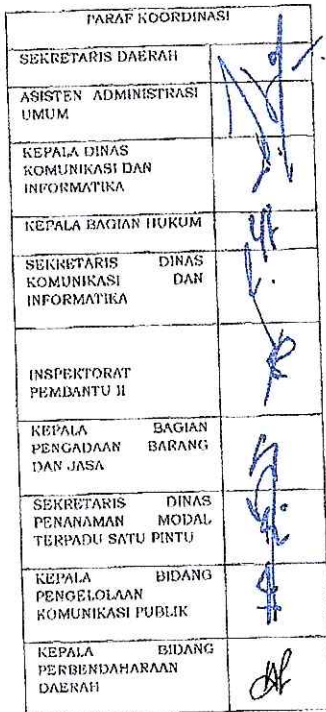 PARAF KOORDINASI
SEKRETARIS DAERAH
ASISTEN ADMINISTRASI
UMUM
KEPALA DINAS
KOMUNIKASI DAN
INFORMATIKA
KEPALA BAGIAN HUKUM
SEKRETARIS DINAS
KOMUNIKASI DAN
INFORMATIKA
INSPEKTORAT
PEMBANTU II
KEPALA BAGIAN
PENGADAAN BARANG
DAN JASA
SEKRETARIS DINAS
PENANAMAN MODAL
TERPADU SATU PINTU
KEPALA BIDANG
PENGELOLAAN
KOMUNIKASI PUBLIK
KEPALA BIDANG
PERBENDAHARAAN
DAERAH